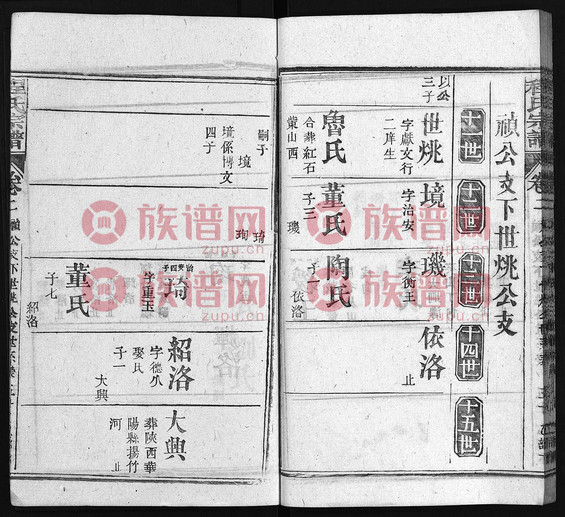 禎公支下世烑公支
十一世
十二世
十三世
十四世
十五世
以公
三子
世烑
字獻文行
二庠生
魯氏
合葬紅石
蒙山西
嗣子
境
境係傅文
四子
境
字治安
董氏
子三
璣
珣
琦
璣
字衡王
陶氏
子一
依洛
治安四子
琦
字重玉
董氏
子七
紹洛
依洛
止
紹洛
字德
娶氏
子一
大興
大興
葬陝西華
陽縣楊竹
河
止
程氏宗譜
卷二
族谱网
zupu.cn